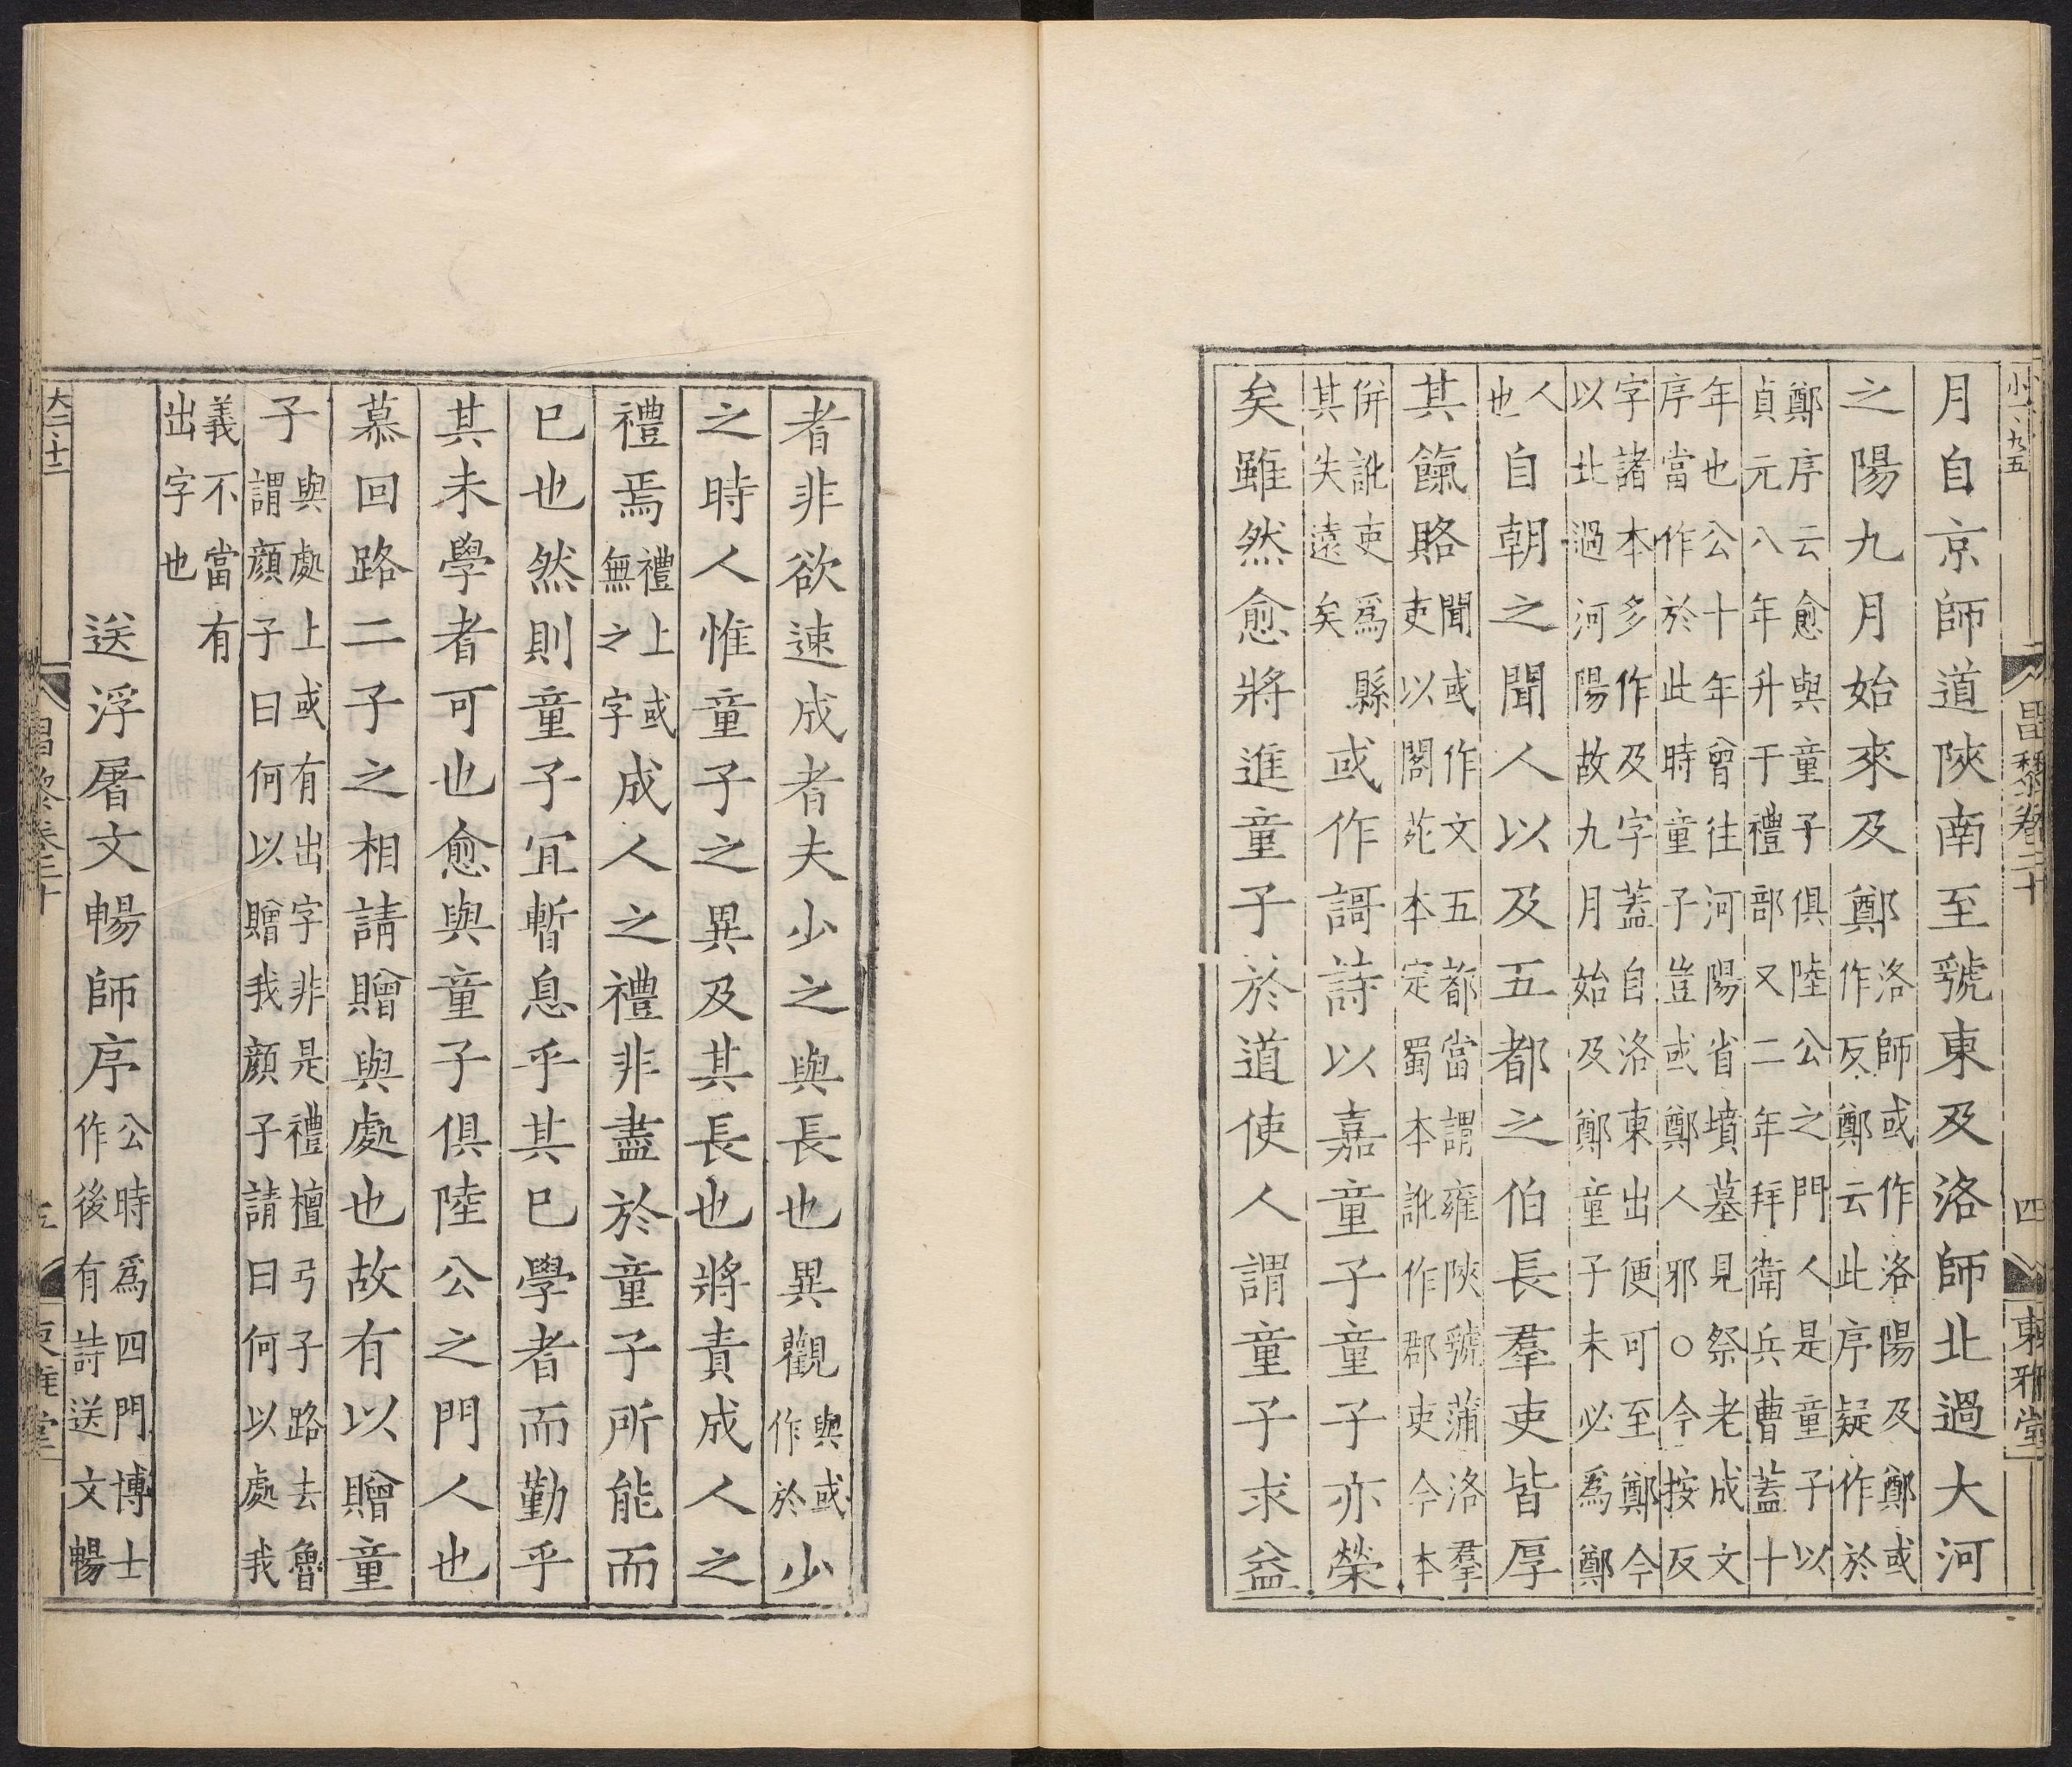 昌黎卷二十 四 東雅堂
月自京師道陝南至虢東及洛師北過大河
之陽九月始來及鄭
洛師或作洛陽及鄭或
作反鄭云此序疑作於
鄭序云愈與童子俱陸公之門人是童子以
貞元八年升于禮部又二年拜衛兵曹蓋十
年也公十年曾往河陽省墳墓見祭老成文
序當作於此時童子豈或鄭人邪○今按反
字諸本多作及字蓋自洛東出便可至鄭今
以北過河陽故九月始及鄭童子未必爲鄭
人
也
自朝之聞人以及五都之伯長羣吏皆厚
其餼賂
聞或作文五都當謂雍陝虢蒲洛羣
吏以閣苑本定蜀本訛作郡吏今本
併訛吏爲縣
其失遠矣
或作謌詩以嘉童子童子亦榮
矣雖然愈將進童子於道使人謂童子求益
者非欲速成者夫少之與長也異觀
與或
作於
少
之時人惟童子之異及其長也將責成人之
禮焉
禮上或
無之字
成人之禮非盡於童子所能而
已也然則童子宜暫息乎其已學者而勤乎
其未學者可也愈與童子俱陸公之門人也
慕回路二子之相請贈與處也故有以贈童
子
與處上或有出字非是禮檀弓子路去魯
謂顏子曰何以贈我顏子請曰何以處我
義不當有
出字也
送浮屠文暢師序
公時爲四門博士
作後有詩送文暢
大二十二
昌黎卷二十 五 東雅堂